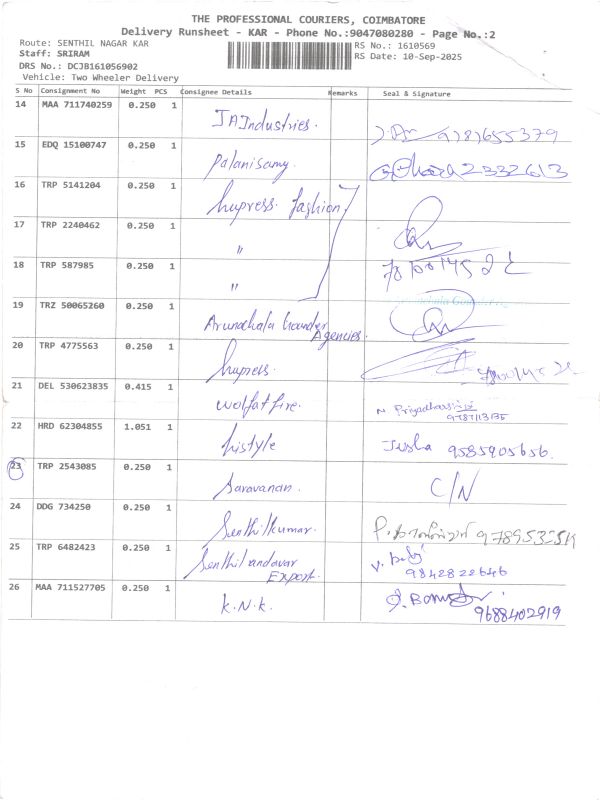 THE PROFESSIONAL COURIERS, COIMBATORE
Delivery Runsheet - KAR - Phone No.:9047080280 - Page No.:2
Route: SENTHIL NAGAR KAR
RS No.: 1610569
Staff: SRIRAM
RS Date: 10-Sep-2025
DRS No.: DCJB161056902
Vehicle: Two Wheeler Delivery
S No Consignment No Weight PCS Consignee Details Remarks Seal & Signature
14 MAA 711740259 0.250 1 JA Industries. 9787655379
15 EDQ 15100747 0.250 1 Palanisamy
16 TRP 5141204 0.250 1 fashion
17 TRP 2240462 0.250 1 "
18 TRP 587985 0.250 1 "
19 TRZ 50065260 0.250 1 Arunachala Gounder Agencies.
20 TRP 4775563 0.250 1
21 DEL 530623835 0.415 1 wolfatfire.
22 HRD 62304855 1.051 1 histyle 9585905656.
23 TRP 2543085 0.250 1 Saravanan. C/N
24 DDG 734250 0.250 1 Senthilkumar.
25 TRP 6482423 0.250 1 Senthilandavar Export. 9842822646
26 MAA 711527705 0.250 1 K.N.K. 9688402919